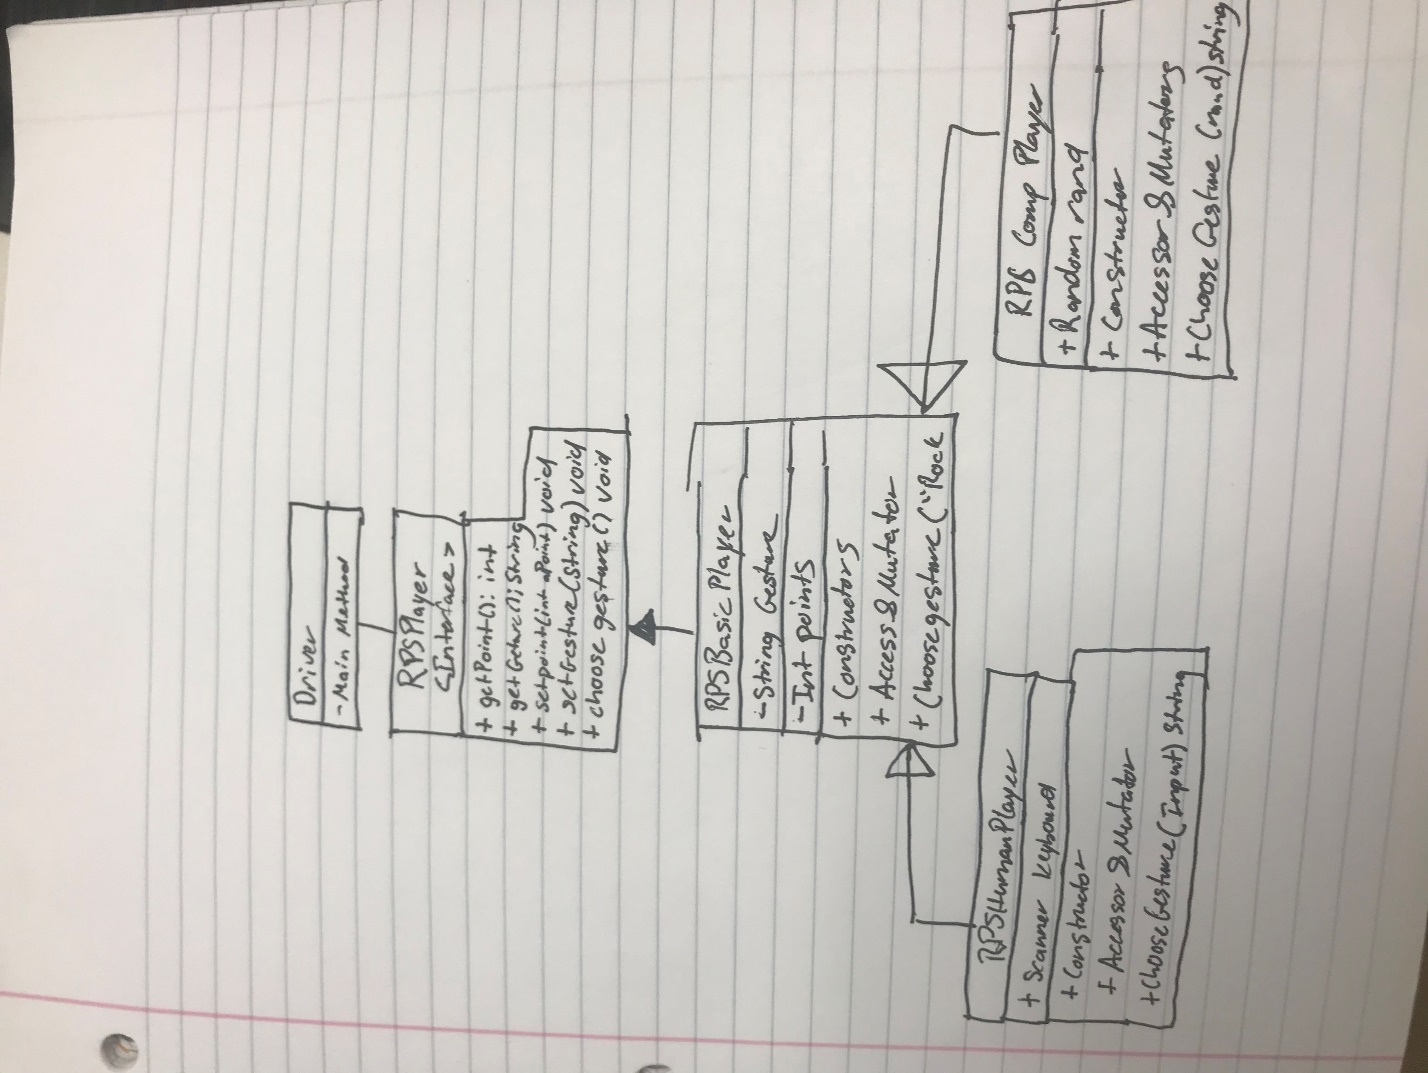 Driver
- Main Method
RPSPlayer
<Interface>
+ getPoint(): int
+ getGesture(): String
+ setpoint(int aPoint) void
+ setGesture(String) void
+ choose gesture() void
RPSBasicPlayer
- String Gesture
- Int points
+ Constructors
+ Access & Mutator
+ Choosegesture("Rock
RPSHumanPlayer
+ Scanner Keyboard
+ Constructor
+ Accessor & Mutator
+ Choose Gesture (Input) String
RPS Comp Player
+ Random rand
+ Constructor
+ Accessor & Mutators
+ Choose Gesture (rand) string